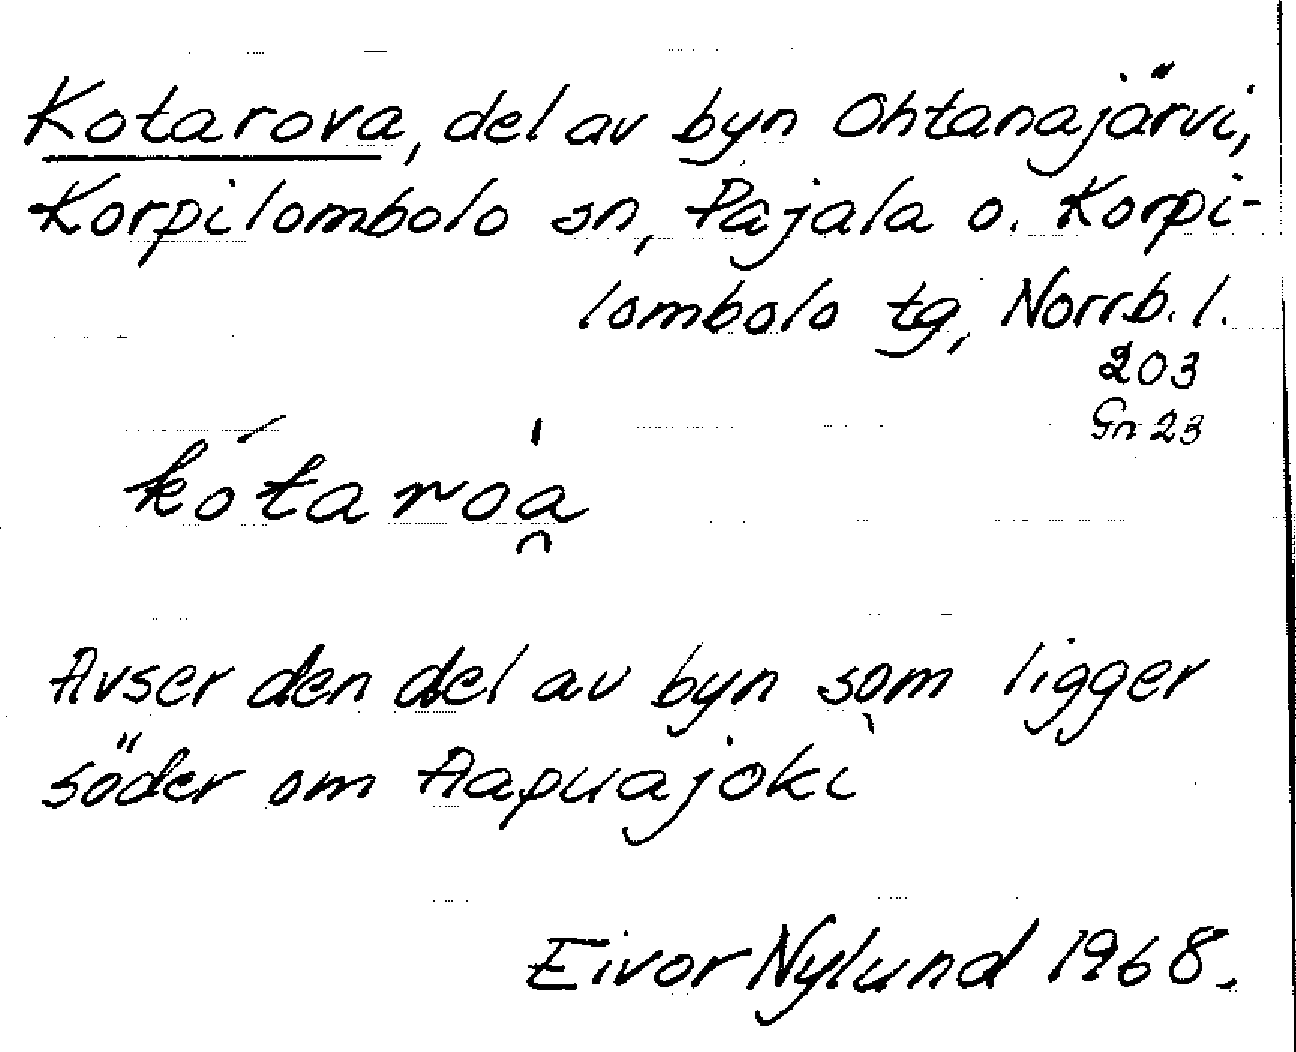 Kotarova, del av byn Ohtanajärvi,
Korpilombolo sn, Pajala o. Korpi-
lombolo tg, Norrb. l.
203
Gn 23
kótaròa̯
Avser den del av byn som ligger
söder om Aapuajoki
Eivor Nylund 1968.